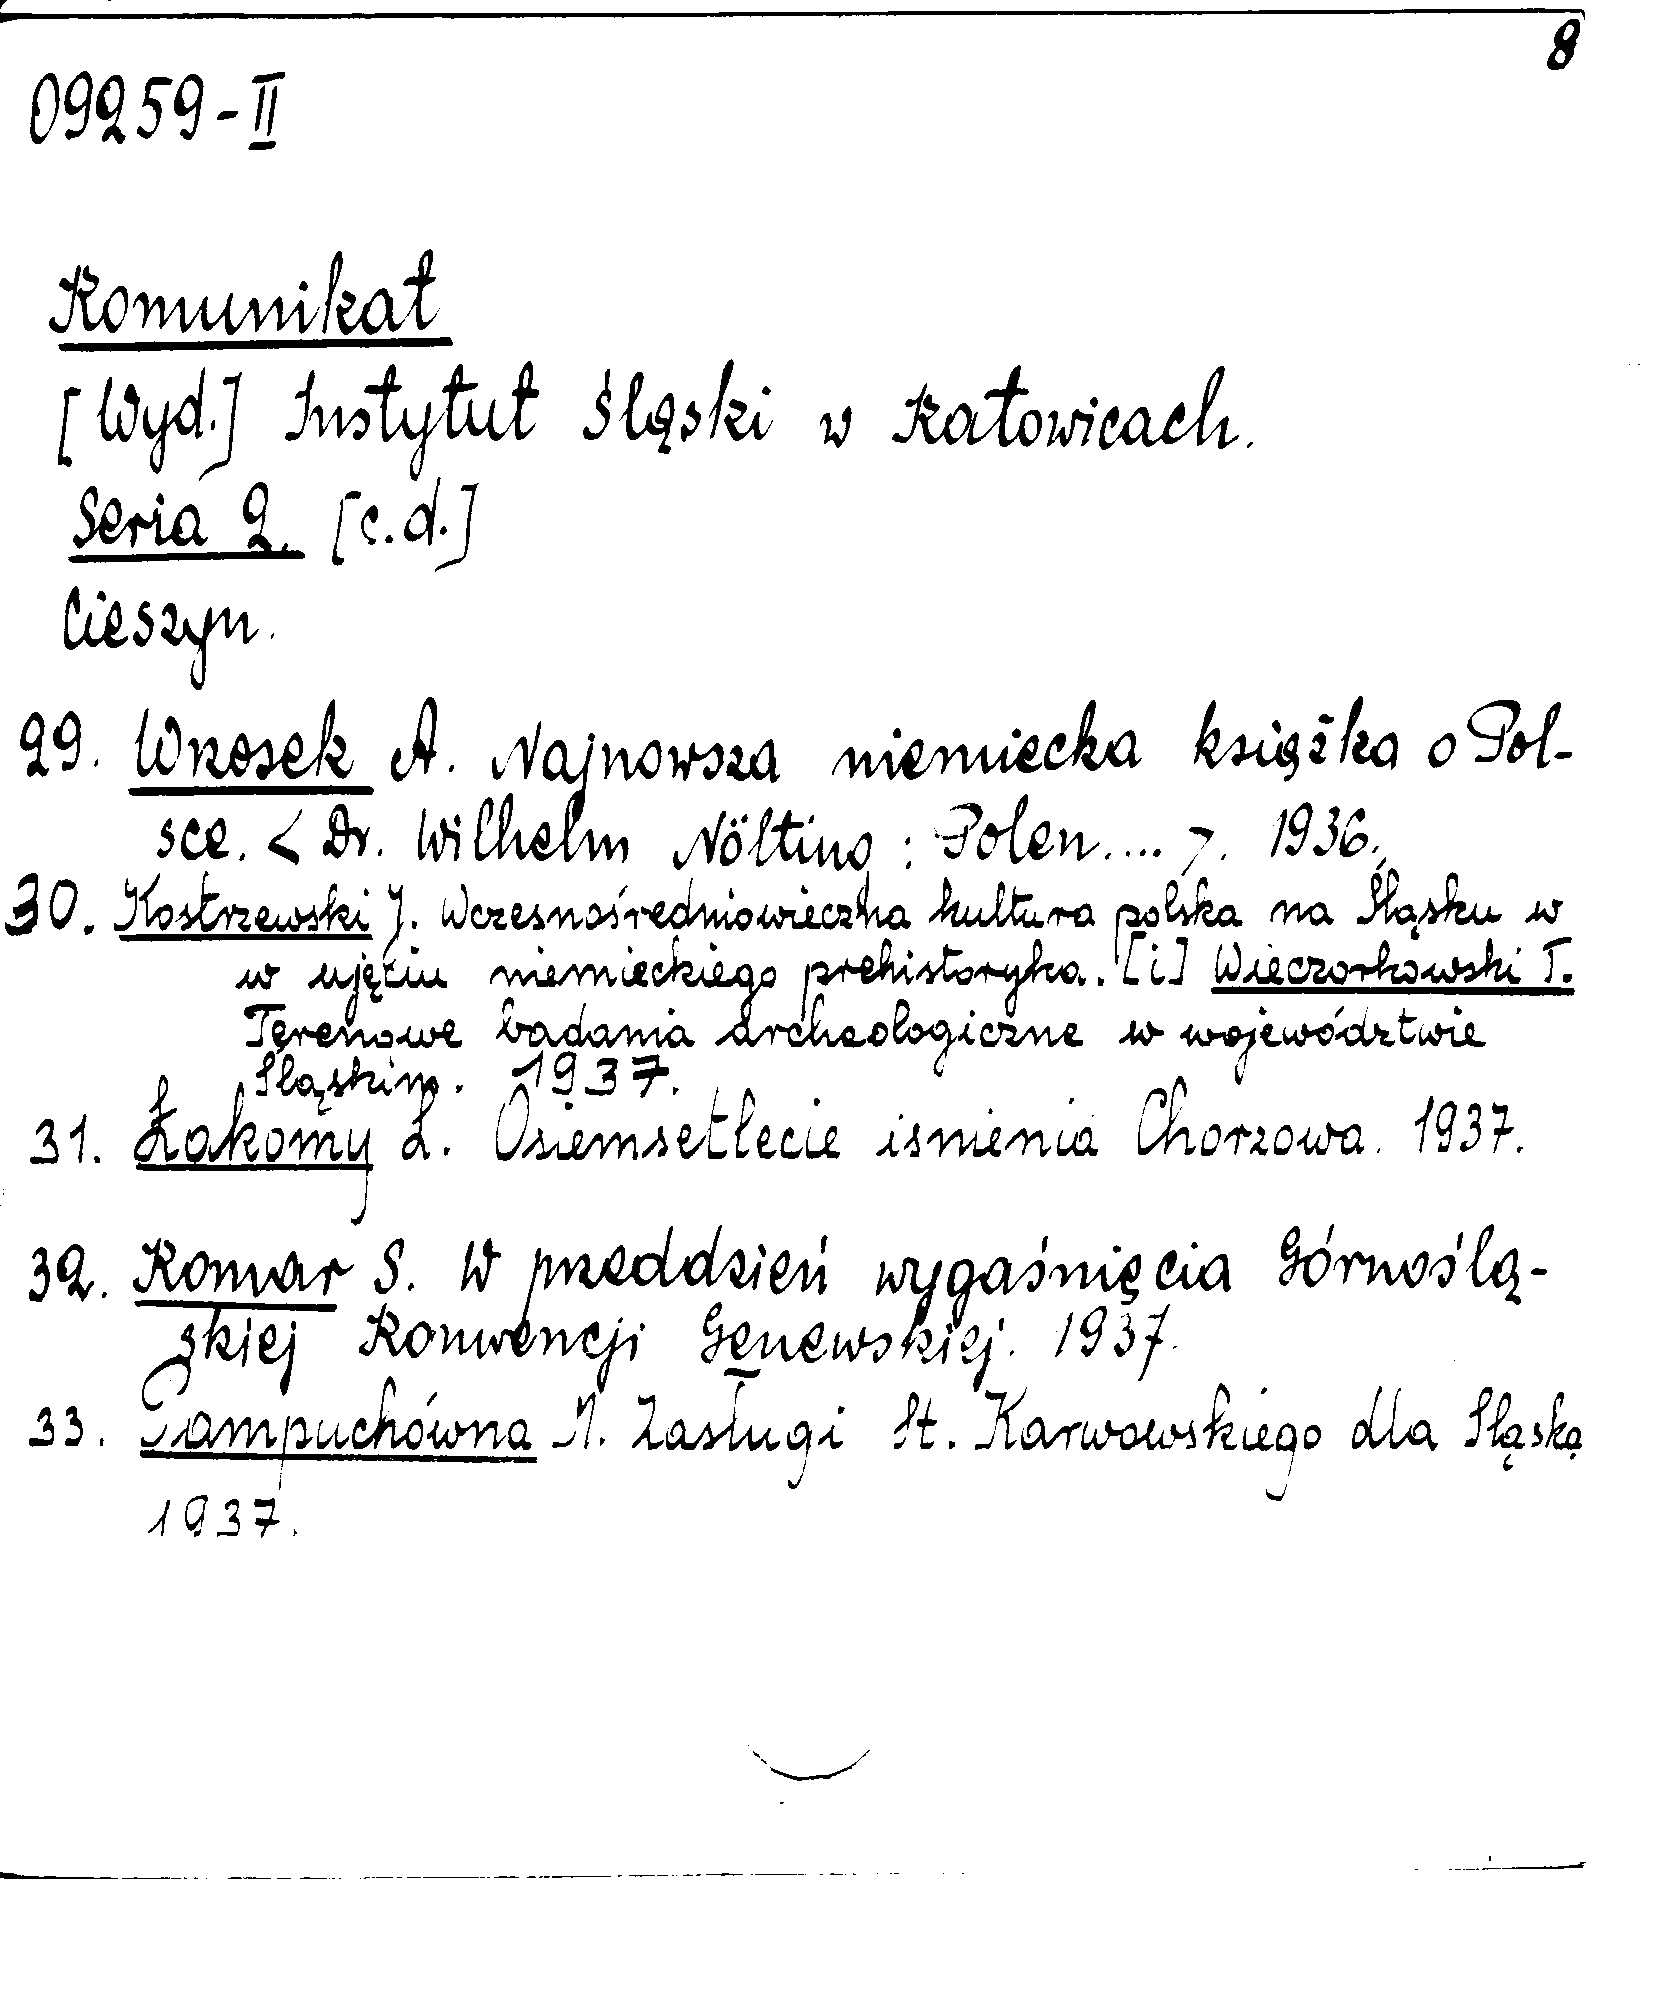 8
09259-II
Komunikat
[Wyd.] Instytut Śląski w Katowicach.
Seria 2. [c.d.]
Cieszyn.
29. Wrzosek A. Najnowsza niemiecka książka o Pol-
sce. < Dr. Wilhelm Nölting : Polen.... >. 1936.
30. Kostrzewski J. Wczesnośredniowieczna kultura polska na Śląsku w
w ujęciu niemieckiego prehistoryka. [i] Wieczorkowski T.
Terenowe badania archeologiczne w województwie
Śląskim. 1937.
31. Łakomy L. Osiemsetlecie isnienia Chorzowa. 1937.
32. Komar S. W przeddzień wygaśnięcia Górnoślą-
skiej Konwencji Genewskiej. 1937.
33. Pampuchówna A. Zasługi St. Karwowskiego dla Śląska
1937.